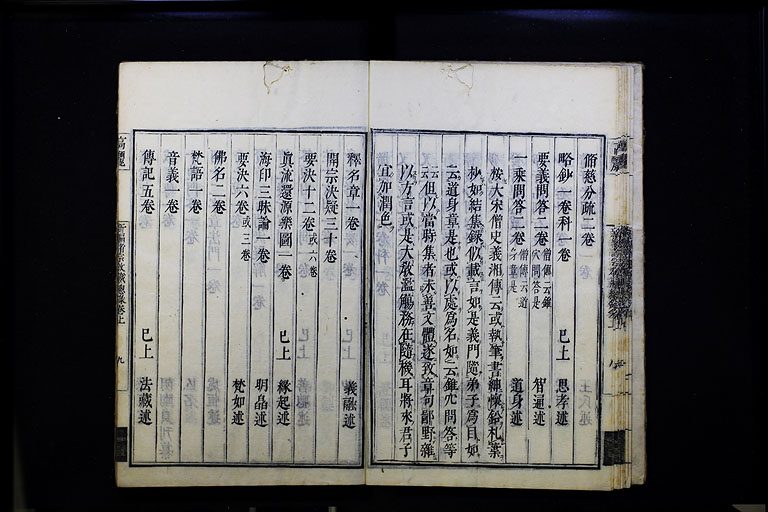 脩慈分疏二卷
略鈔一卷科一卷　已上　思孝述
要義問答二卷　僧傳云錐穴問答是　智通述
一乘問答二卷　僧傳云道身章是　道身述
按大宋僧史義湘傳云或執筆書紳懷鉛札葉
抄如結集錄似載言如是義門隨弟子爲目如
云道身章是也或以處爲名如云錐穴問答等
云但以當時集者未善文體遂致章句鄙野雜
以方言或是大教濫觴務在隨機耳將來君子
宜加潤色
釋名章一卷　義融述
開宗決疑三十卷
要決十二卷或六卷
眞流還源樂圖一卷　已上　緣起述
海印三昧論一卷　明皛述
要決六卷或三卷　梵如述
佛名二卷
梵語一卷
音義一卷
傳記五卷　已上　法藏述
高麗
新編諸宗教藏總錄卷上
九